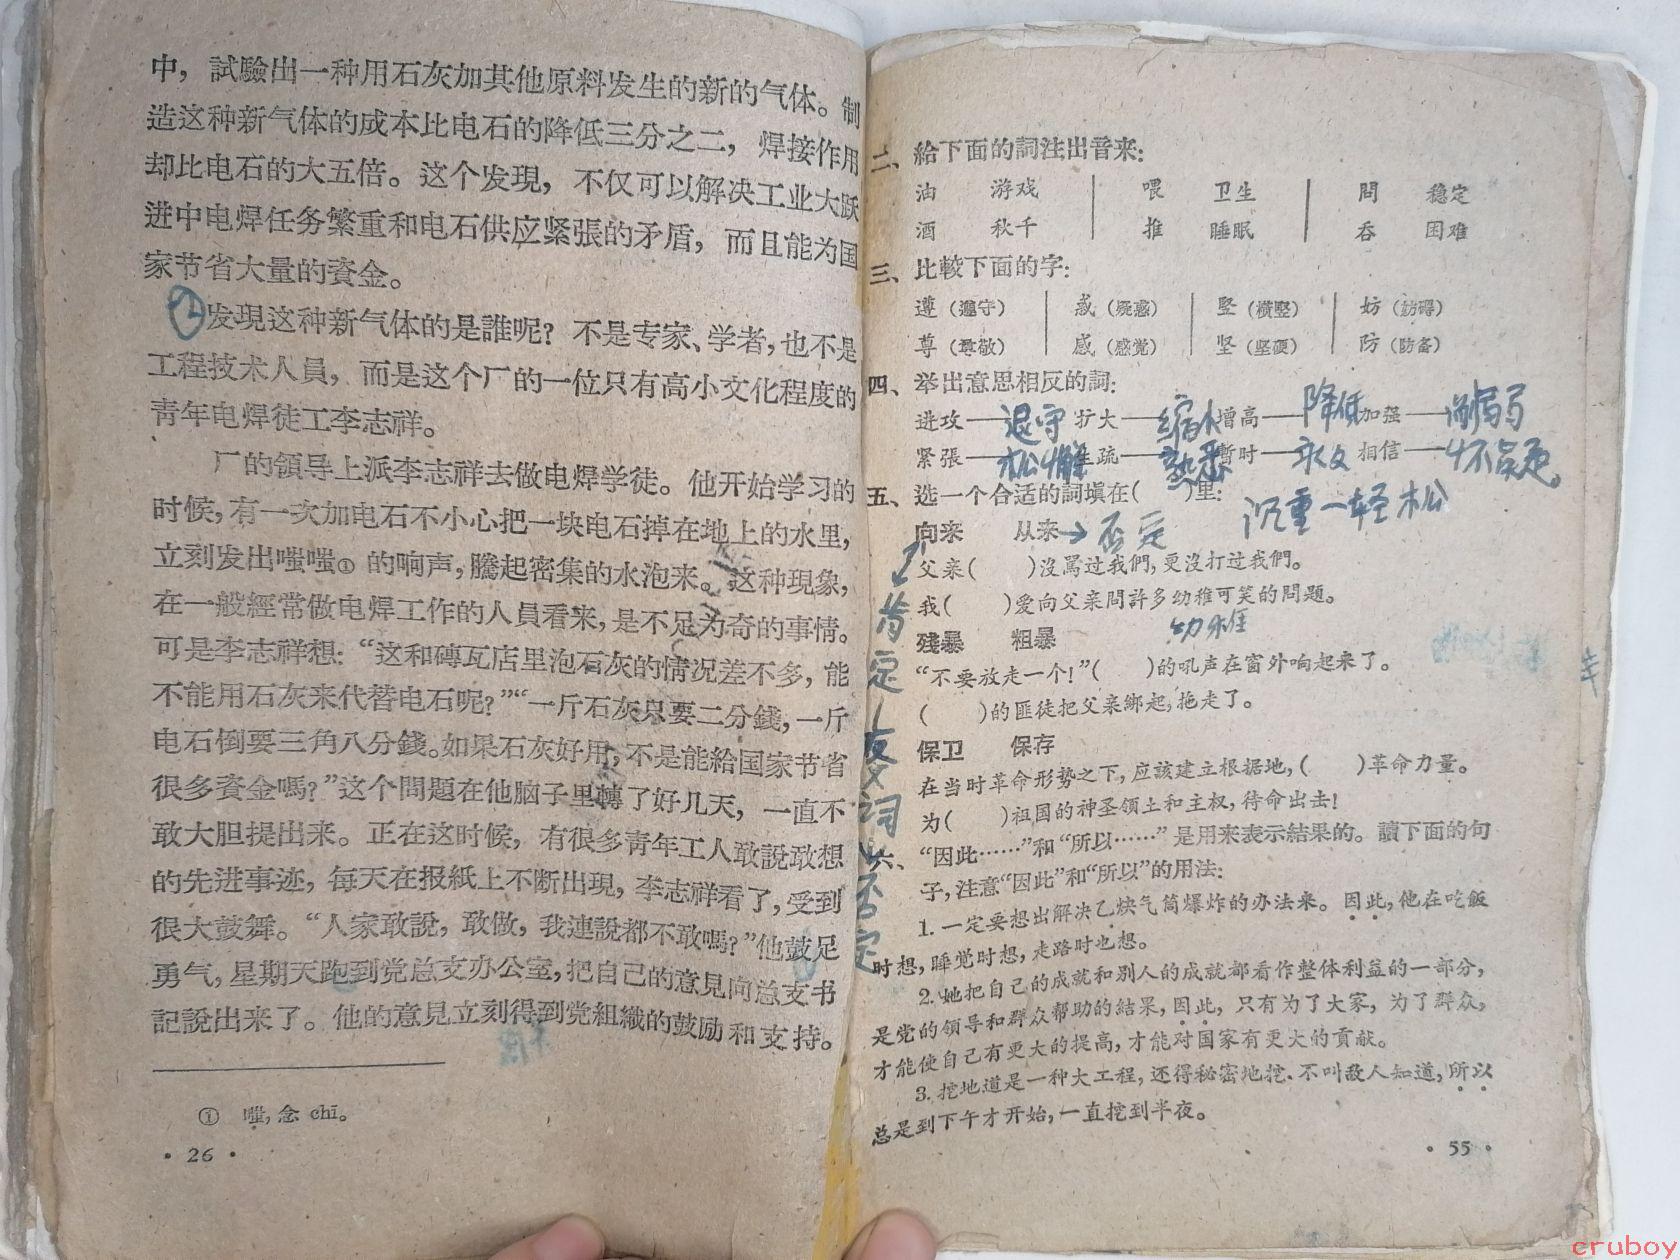 中，試驗出一种用石灰加其他原料发生的新的气体。制
造这种新气体的成本比电石的降低三分之二，焊接作用
却比电石的大五倍。这个发現，不仅可以解决工业大跃
进中电焊任务繁重和电石供应紧張的矛盾，而且能为国
家节省大量的資金。
发現这种新气体的是誰呢？不是专家、学者，也不是
工程技术人員，而是这个厂的一位只有高小文化程度的
青年电焊徒工李志祥。
厂的領导上派李志祥去做电焊学徒。他开始学习的
时候，有一次加电石不小心把一块电石掉在地上的水里，
立刻发出嗤嗤①的响声，騰起密集的水泡来。这种現象，
在一般經常做电焊工作的人員看来，是不足为奇的事情。
可是李志祥想：“这和磚瓦店里泡石灰的情况差不多，能
不能用石灰来代替电石呢？”“一斤石灰只要二分錢，一斤
电石倒要三角八分錢。如果石灰好用，不是能給国家节省
很多資金嗎？”这个問題在他脑子里轉了好几天，一直不
敢大胆提出来。正在这时候，有很多青年工人敢說敢想
的先进事迹，每天在报紙上不断出現，李志祥看了，受到
很大鼓舞。“人家敢說，敢做，我連說都不敢嗎？”他鼓足
勇气，星期天跑到党总支办公室，把自己的意見向总支书
記說出来了。他的意見立刻得到党組織的鼓励和支持。
① 嗤，念 chī。
• 26 •
二、給下面的詞注出音来：
油 游戏 喂 卫生 問 稳定
酒 秋千 推 睡眠 吞 困难
三、比較下面的字：
遵（遵守） 惑（疑惑） 竖（横竖） 妨（妨碍）
尊（尊敬） 感（感觉） 坚（坚硬） 防（防备）
四、举出意思相反的詞：
进攻——退守 扩大——缩小 增高——降低 加强——削弱
紧張——松懈 生疏——熟悉 暫时——永久 相信——怀疑
沉重—轻松
五、选一个合适的詞填在（ ）里：
向来 从来→否定
父亲（ ）沒罵过我們，更沒打过我們。
我（ ）爱向父亲問許多幼稚可笑的問題。
幼稚
殘暴 粗暴
“不要放走一个！”（ ）的吼声在窗外响起来了。
（ ）的匪徒把父亲綁起，拖走了。
保卫 保存
在当时革命形势之下，应該建立根据地，（ ）革命力量。
为（ ）祖国的神圣領土和主权，待命出去！
肯定
反义词
否定
六、“因此……”和“所以……”是用来表示結果的。讀下面的句
子，注意“因此”和“所以”的用法：
1. 一定要想出解决乙炔气筒爆炸的办法来。因此，他在吃飯
时想，睡觉时想，走路时也想。
2. 她把自己的成就和别人的成就都看作整体利益的一部分，
是党的領导和群众帮助的結果，因此，只有为了大家，为了群众，
才能使自己有更大的提高，才能对国家有更大的貢献。
3. 挖地道是一种大工程，还得秘密地挖，不叫敌人知道，所以
总是到下午才开始，一直挖到半夜。
• 55 •
cruboy